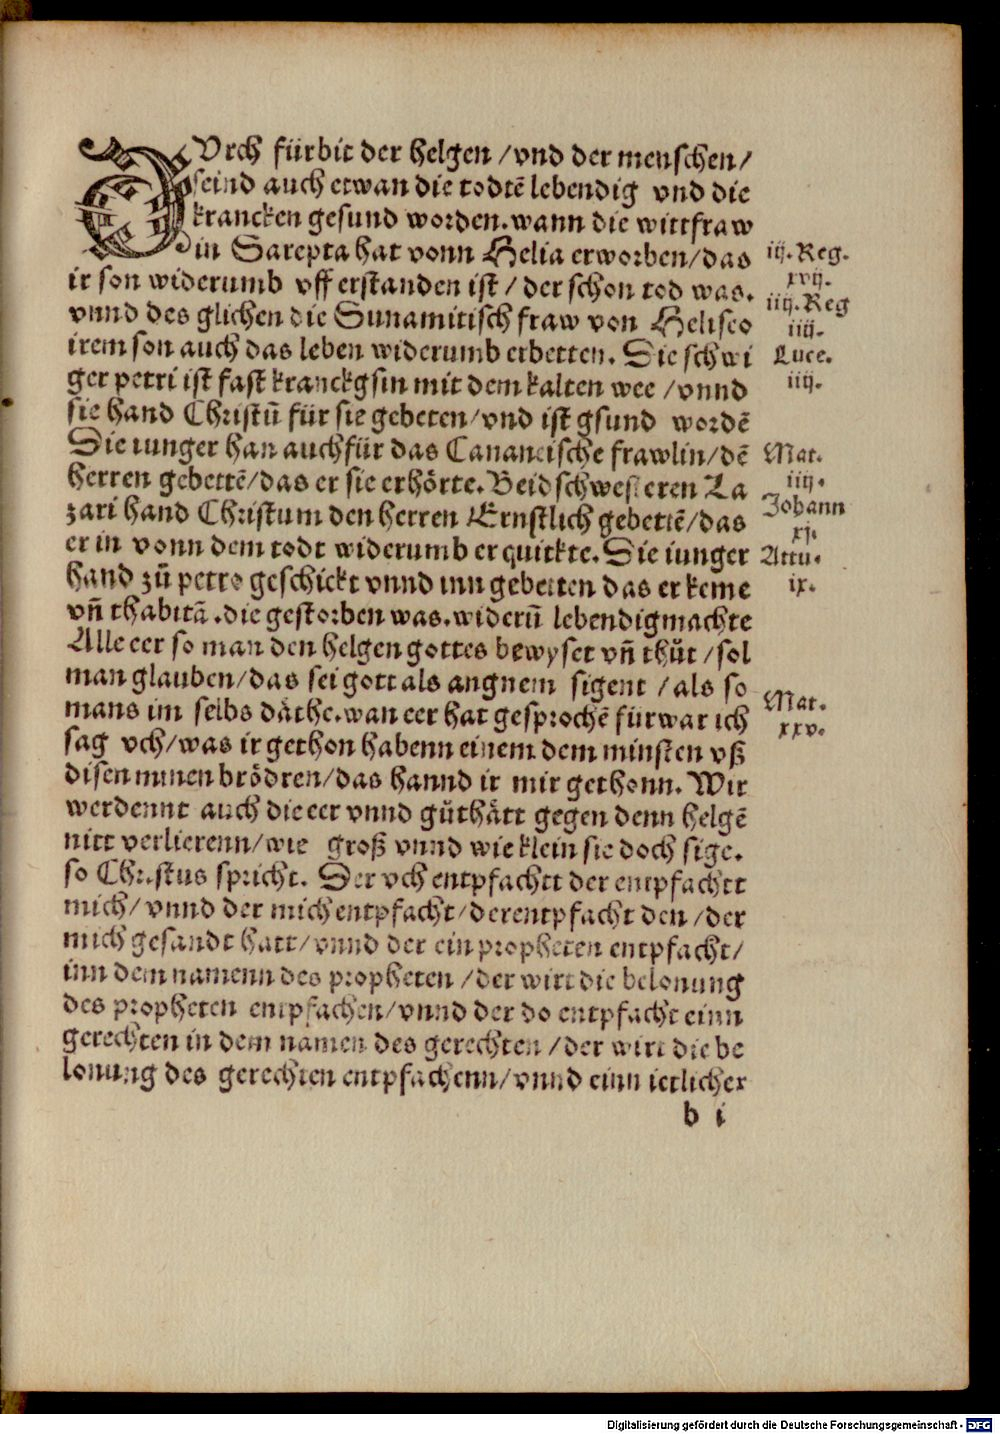 DUrch fürbit der helgen /vnd der menschen/
seind auch etwan die todtē lebendig vnd die
krancken gesund worden. wann die wittfraw
in Sarepta hat vonn Helia erworben/das
ir son widerumb vff erstanden ist / der schon tod was.
vnnd des glichen die Sunamitisch fraw von Heliseo
irem son auch das leben widerumb erbetten. Die schwi
ger petri ist fast kranckgsin mit dem kalten wee /vnnd
sie hand Christū für sie gebeten/vnd ist gsund wordē
Die iunger han auch für das Cananeische frawlin/dē
herren gebettē/das er sie erhörte. Beid schwesteren La
zari hand Christum den herren Ernstlich gebettē/das
er in vonn dem todt widerumb erquickte. Die iunger
hand zů petro geschickt vnnd inn gebetten das er keme
vñ thabitā .die gestorben was. widerū lebendig machte
Alle eer so man den helgen gottes bewyset vñ thůt /sol
man glauben/das sei gott als angnem sigent /als so
mans im selbs däthe. wan eer hat gesprochē fürwar ich
sag vch/was ir gethon habenn einem dem minsten vß
disen minen brödren/das hannd ir mir gethonn. Wir
werdennt auch die eer vnnd gůthätt gegen denn helgē
nitt verlierenn/wie groß vnnd wie klein sie doch sige.
so Christus spricht. Der vch entpfachtt der empfachtt
mich/vnnd der mich entpfacht/der entpfacht den /der
mich gesandt hatt/vnnd der ein propheten entpfacht/
inn dem namenn des propheten /der wirt die belonung
des propheten empfachen/vnnd der do entpfacht einn
gerechten in dem namen des gerechten /der wirt die be
lonung des gerechten entpfachenn/vnnd einn ietlicher
b i
iij. Reg.
xvij.
iiij. Reg
iiij.
Luce.
iiij.
Mat.
iiij.
Johann
xj.
Actu.
ix.
Mat.
xxv.
Digitalisierung gefördert durch die Deutsche Forschungsgemeinschaft - DFG